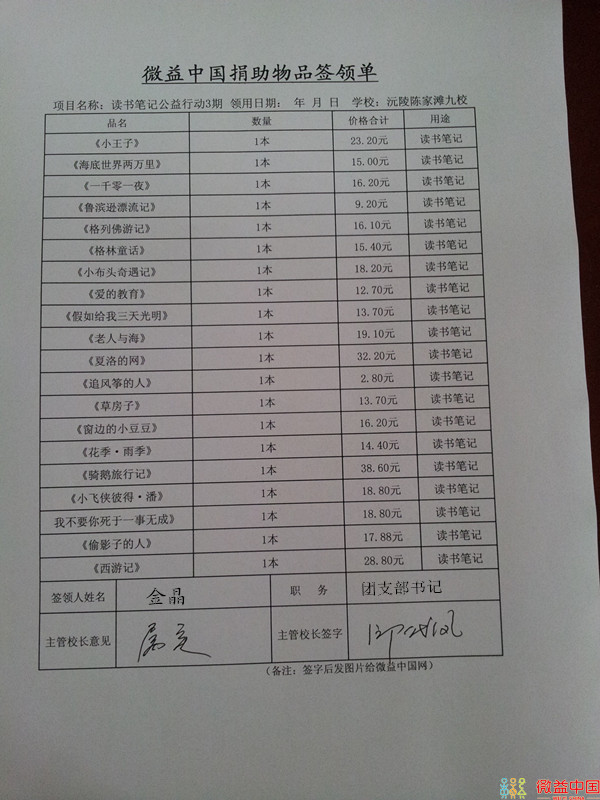 微益中国捐助物品签领单
项目名称：读书笔记公益行动3期 领用日期： 年 月 日 学校：沅陵陈家滩九校
品名 数量 价格合计 用途
《小王子》 1本 23.20元 读书笔记
《海底世界两万里》 1本 15.00元 读书笔记
《一千零一夜》 1本 16.20元 读书笔记
《鲁滨逊漂流记》 1本 9.20元 读书笔记
《格列佛游记》 1本 16.10元 读书笔记
《格林童话》 1本 15.40元 读书笔记
《小布头奇遇记》 1本 18.20元 读书笔记
《爱的教育》 1本 12.70元 读书笔记
《假如给我三天光明》 1本 13.70元 读书笔记
《老人与海》 1本 19.10元 读书笔记
《夏洛的网》 1本 32.20元 读书笔记
《追风筝的人》 1本 2.80元 读书笔记
《草房子》 1本 13.70元 读书笔记
《窗边的小豆豆》 1本 16.20元 读书笔记
《花季·雨季》 1本 14.40元 读书笔记
《骑鹅旅行记》 1本 38.60元 读书笔记
《小飞侠彼得·潘》 1本 18.80元 读书笔记
我不要你死于一事无成》 1本 18.80元 读书笔记
《偷影子的人》 1本 17.88元 读书笔记
《西游记》 1本 28.80元 读书笔记
签领人姓名 金晶 职 务 团支部书记
主管校长意见 属实 主管校长签字
（备注：签字后发图片给微益中国网）
微益中国